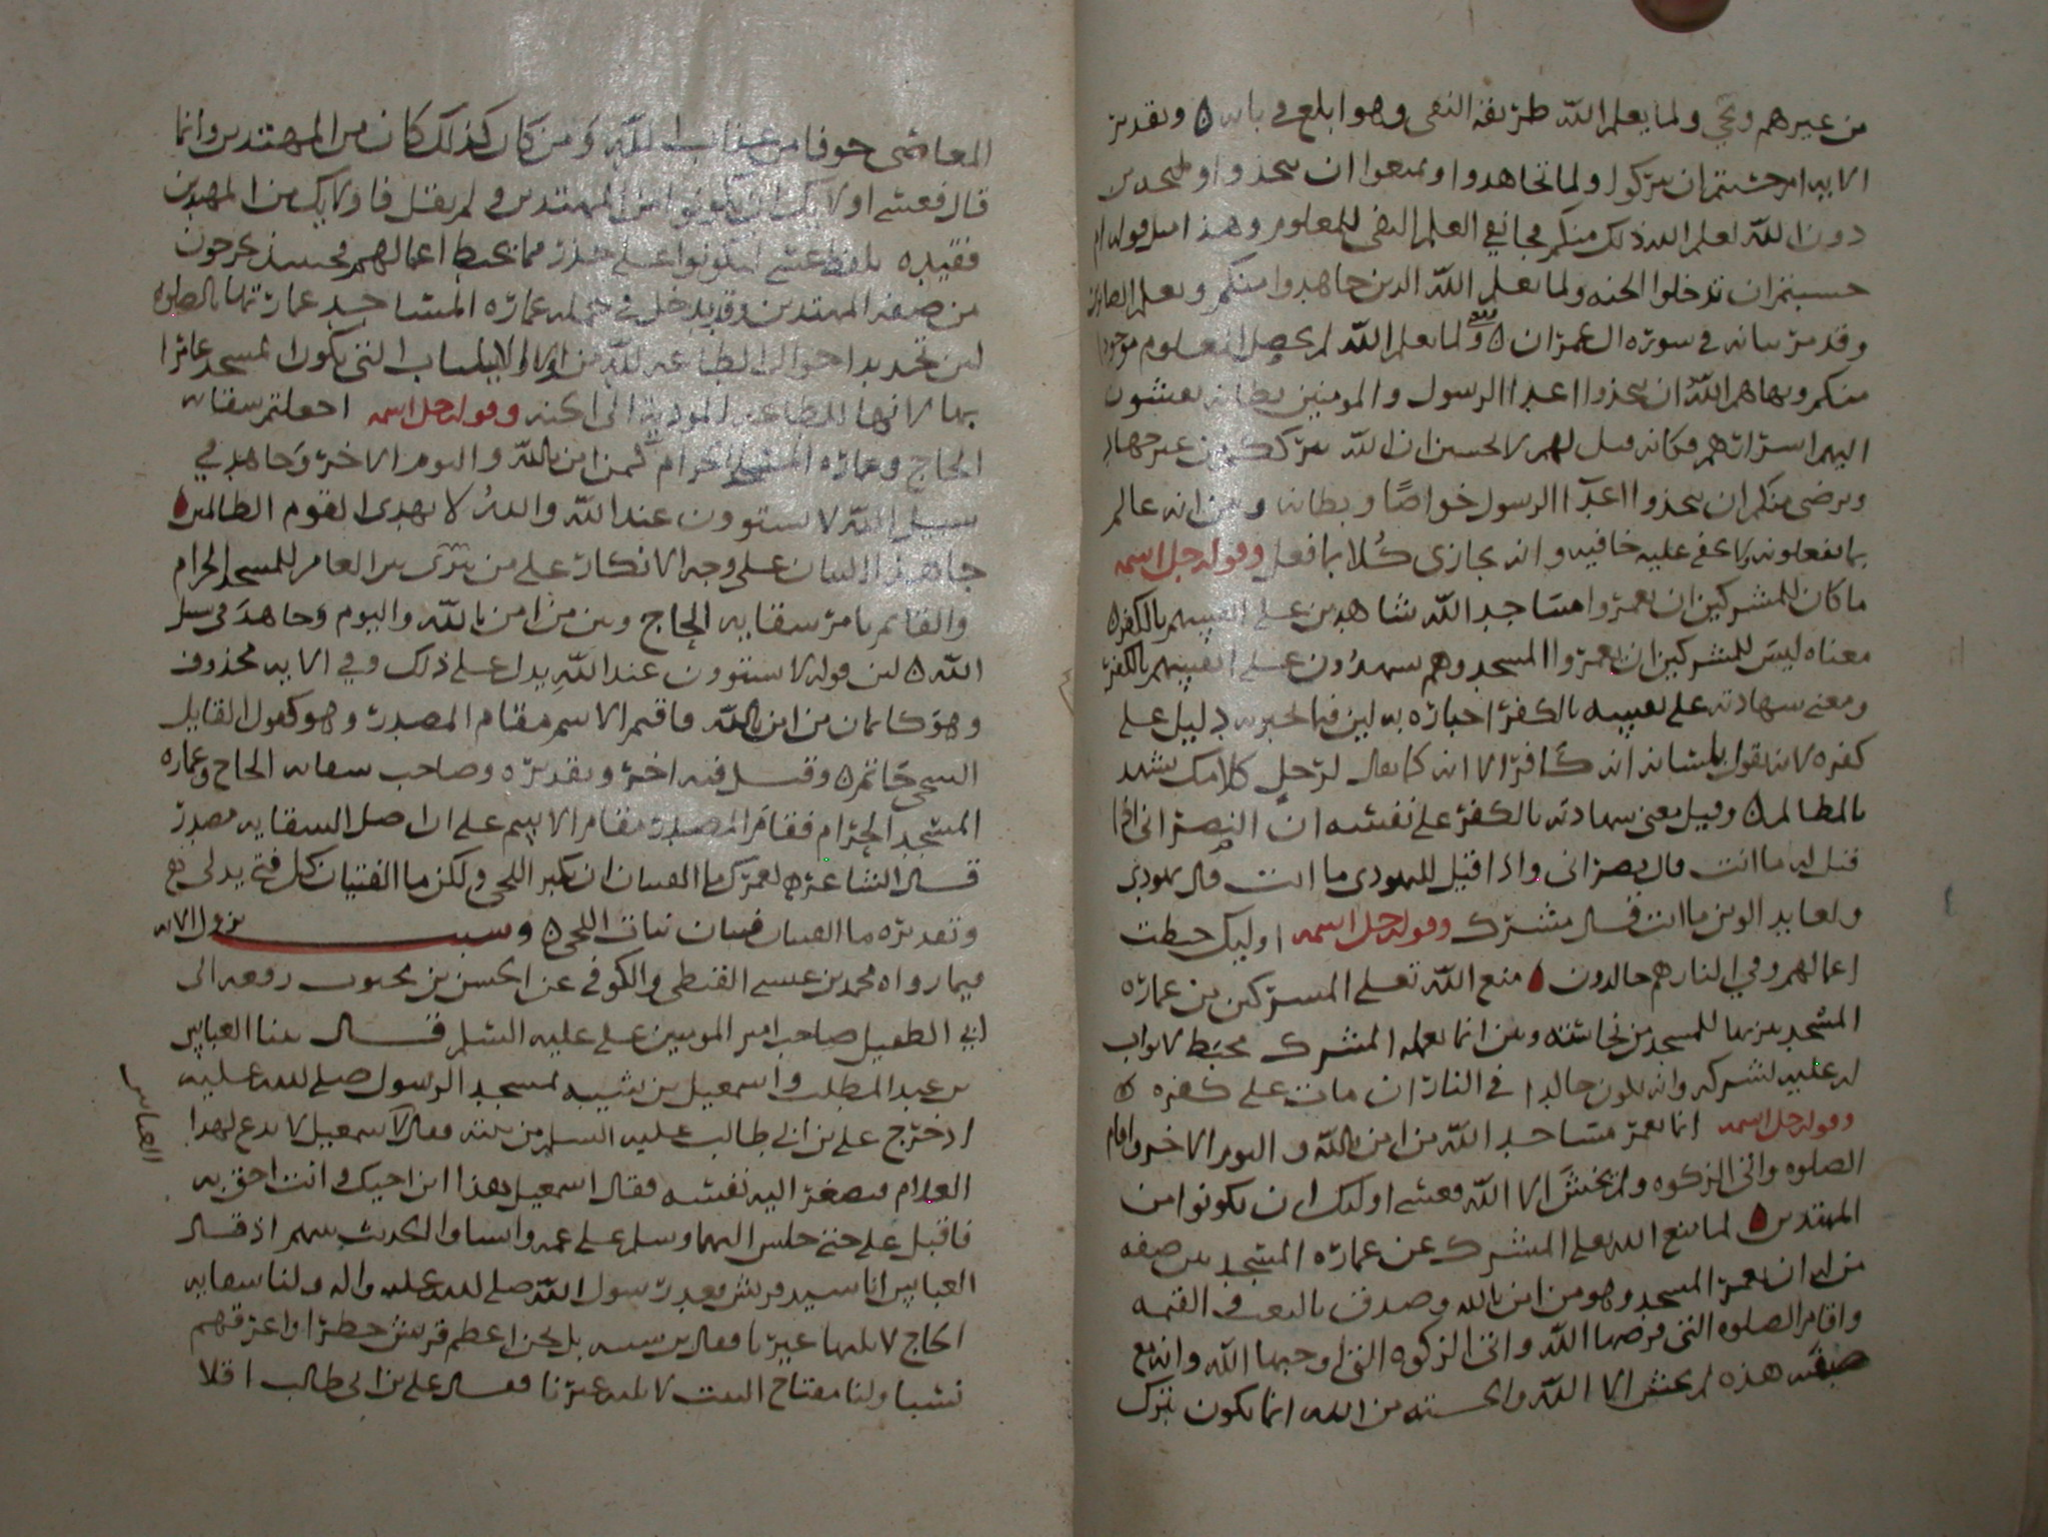 من غيرهم ونجي ولما يعلم الله طريقة النفي وهو ابلغ في بابه ه وتقدير
الايه ام حسبتم ان تتركوا ولما تجاهدوا وتمنعوا ان تتخذوا وليجه من
دون الله لعلم الله ذلك منكم فجا نفي العلم النفي للمعلوم وهذا مثل قوله ام
حسبتم ان تدخلوا الجنه ولما يعلم الله الذين جاهدوا منكم ويعلم الصابرين
وقد مر بيانه في سوره ال عمران ه ولما يعلم الله لم يحصل المعلوم موجودا
منكم ونهاهم الله ان يتخذوا اعدا الرسول والمومنين بطانه يفشون
اليهم اسرارهم فكانه قيل لهم لا تحسبن ان الله يترككم من غير جهاد
ويرضى منكم ان تتخذوا اعدآ الرسول خواصًا وبطانه وبين انه عالم
بما تفعلونه لا يخفى عليه خافيه وانه يجازي كُلا بما فعل وقوله جل اسمه
ما كان للمشركين ان يعمروا مساجد الله شاهدين على انفسهم بالكفر ه
معناه ليس للمشركين ان يعمروا المسجد وهم يشهدُون على انفسهم بالكفر
ومعنى شهادته على نفسه بالكفر اخباره به لين فيما اخبر به دليل على
كفره لا انه يقول بلسانه انه كافر الا انه كما يقال لرجل كلامك يشهد
بالمطالم ه وقيل معنى شهادته بالكفر على نفسه ان النصراني اذا
قيل له ما انت قال نصراني واذا قيل لليهودي ما انت قال يهودي
ولعابد الوثن ما انت قال مشرك وقوله جل اسمه اوليك حبطت
اعمالهم وفي النار هم خالدون ه منع الله تعلى المشركين من عماره
المسجد تنزيها للمسجد من نجاسته وبين انما يعمله المشرك محبط لا ثواب
له عليه لشركه وانه يكون خالدا في النار ان مات على كفره ه
وقوله جل اسمه انما يعمر مساجد الله من امن بالله واليوم الاخر واقام
الصلوه واتى الزكوه ولم يخش الا الله فعسى اوليك ان يكونوا من
المهتدين ه لما منع الله تعلى المشرك عن عماره المسجد بين صفه
من له ان يعمر المسجد وهو من امن بالله وصدق بالبعث في القيمه
واقام الصلوه التي فرضها الله واتى الزكوه التي اوجبها الله وانه مع
صفته هذه لم يخش الا الله والخشيه من الله انما تكون بترك
المعاصي خوفا من عذاب الله وَمن كان كذلك كان من المهتدين وانما
قال فعسى اوليك ان يكونوا من المهتدين ولم يقل فاوليك من المهتدين
فقيده بلفظ عسى ليكونوا على حذر مما يحبط اعمالهم فحينيذ يخرجون
من صفه المهتدين وقد يدخل في جمله عماره المساجد عمارتها بالصلوه
لين تجديد احوال الطاعه لله من اوكد الاسباب التي يكون المسجد عامرا
بها لانها للطاعه المودية الى الجنه وقوله جل اسمه اجعلتم سقايه
الحاج وعماره المسجد الحرام كمن امن بالله واليوم الاخر وَجاهد في
سبيل الله لا يستوون عند الله واللهُ لا يهدي القوم الظالمين ه
جا هذا البيان على وجه الانكار على من سوى بين العامر للمسجد الحرام
والقايم بامر سقايه الحاج وبين من امن بالله واليوم وجاهدَ في سبيل
الله ه لين قوله لا يستوون عند اللهِ يدل على ذلك وفي الايه محذوف
وهو كايمان من امن بالله فاقيم الاسم مقام المصدر وهو كقول القايل
السخى حاتم ه وقيل فيه اخر وتقديره وصاحب سقايه الحاج وعماره
المسجد الحرام فقام المصدر مقام الاسم على ان اصل السقايه مصدر
قال الشاعر ه لعمرك ما الفتيان ان تكبر اللحى ولكن ما الفتيان كل فتى يدلى
وتقديره ما الفتيان فتيان نبات اللحى ه وسبب نزول الايه
فيما رواه محمد بن عيسى القنطي والكوفي عن الحسن بن محبوب رفعه الى
ابي الطفيل صاحب امير المومنين علي عليه السلم قال بينا العباس
بن عبد المطلب واسمعيل بن شيبه لمسجد الرسول صلى الله عليه
اذ خرج علي بن ابي طالب عليه السلم من بيته فقال لاسمعيل لا تدع لهذا
العباس
الغلام فيصغر اليه نفسه فقال اسمعيل هذا ابن اخيك وانت احق به
فاقبل علي حتى جلس اليهما وسلم على عمه وانساوا الحديث بينهم اذ قال
العباس انا سيد قريش بعد رسول الله صلى الله عليه واله ولنا سقايه
الحاج لا يليها غيرنا فقال بن شيبه بل نحن اعظم قريش خطرا واعرقهم
نسبا ولنا مفتاح البيت لا يليه غيرنا فقال علي بن ابي طالب افلا